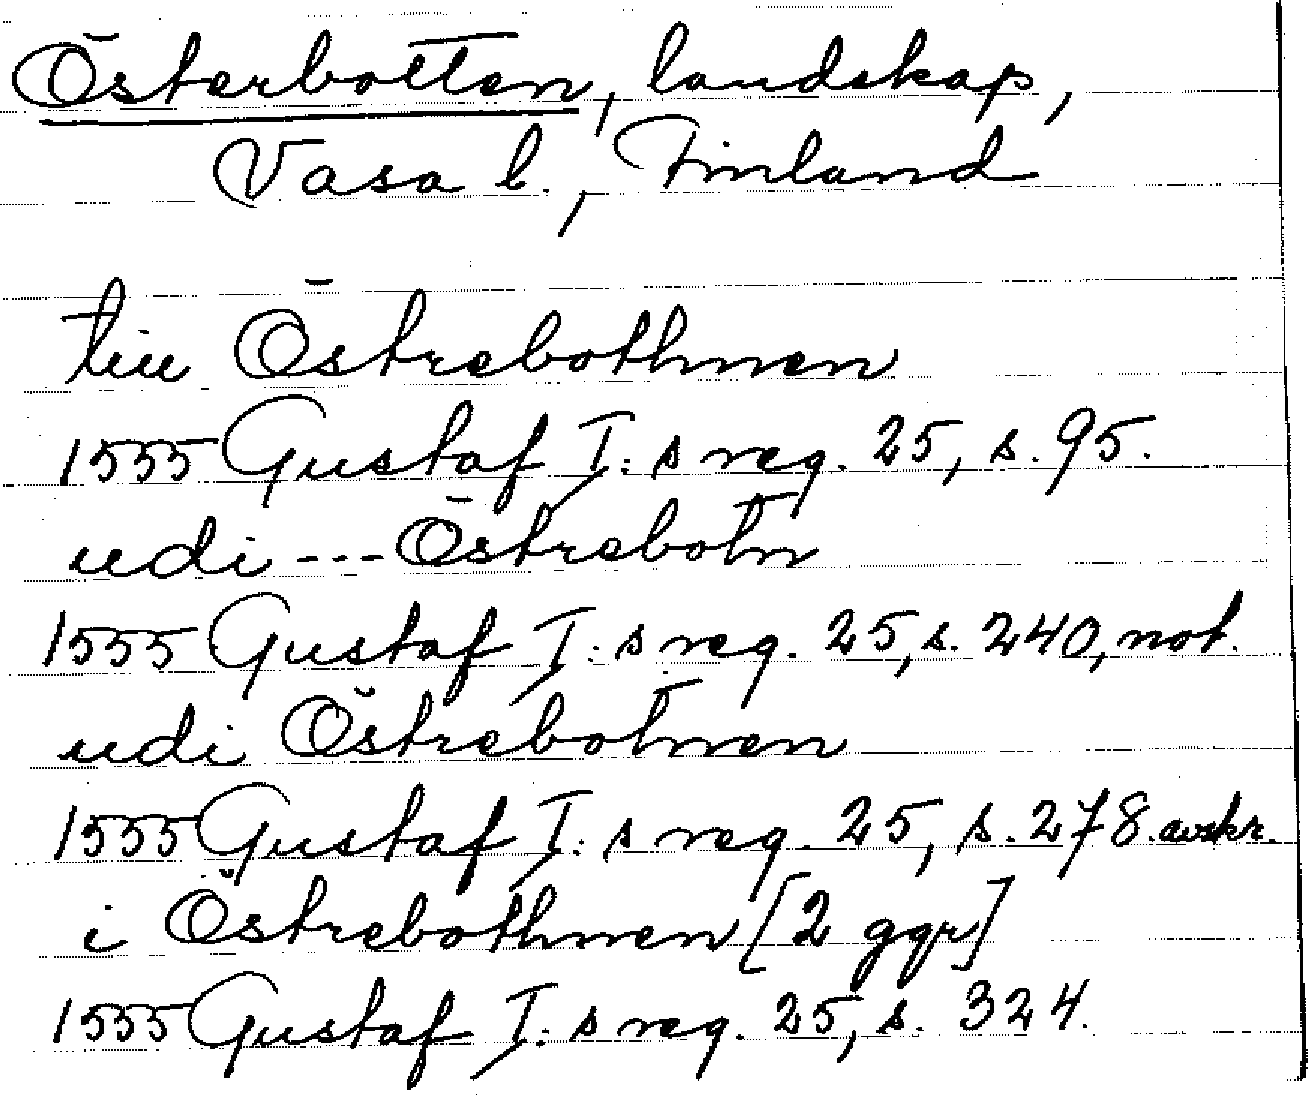 Österbotten, landskap,
Vasa l., Finland
till Östrebothnen
1555 Gustaf I:s reg. 25, s. 95.
udi --- Östrebotn
1555 Gustaf I:s reg. 25, s. 240, not.
udi Östrebotnen
1555 Gustaf I:s reg. 25, s. 278. avskr.
i Östrebothnen [2 ggr]
1555 Gustaf I:s reg. 25, s. 324.